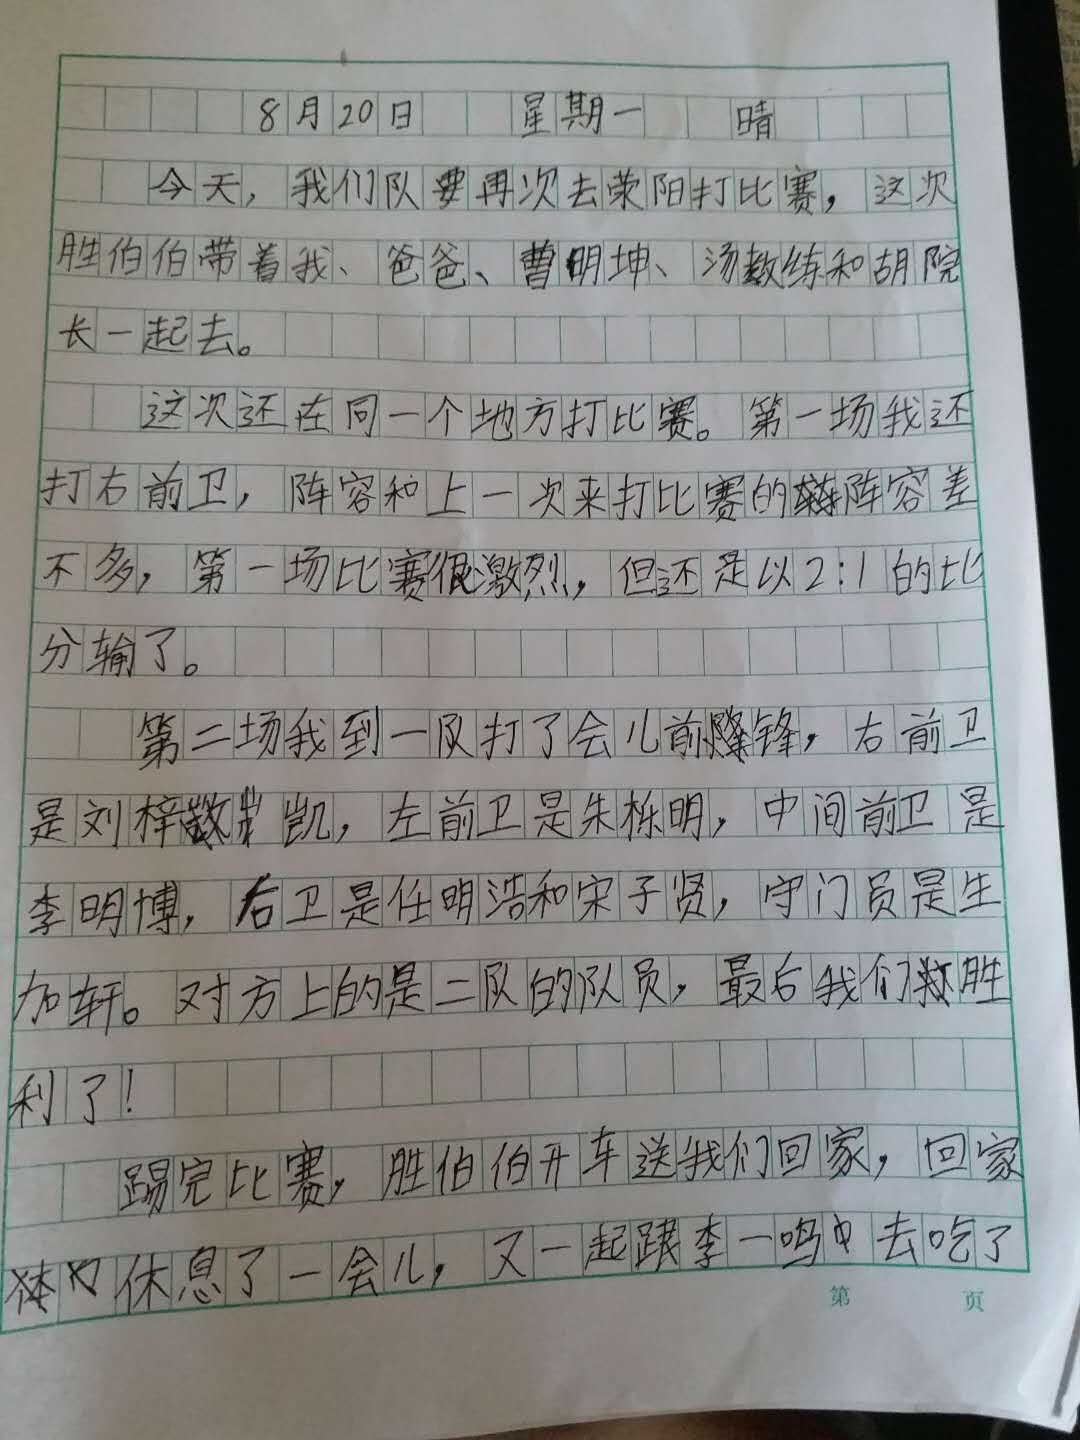 8月20日 星期一 晴
今天，我们队要再次去荥阳打比赛，这次
胜伯伯带着我、爸爸、曹明坤、汤教练和胡院
长一起去。
这次还在同一个地方打比赛。第一场我还
打右前卫，阵容和上一次来打比赛的阵容差
不多，第一场比赛很激烈，但还是以2:1的比
分输了。
第二场我到一队打了会儿前锋，右前卫
是刘梓凯，左前卫是朱栎明，中间前卫是
李明博，后卫是任明浩和宋子贤，守门员是生
加轩。对方上的是二队的队员，最后我们胜
利了！
踢完比赛，胜伯伯开车送我们回家，回家
休息了一会儿，又一起跟李一鸣去吃了
第 页